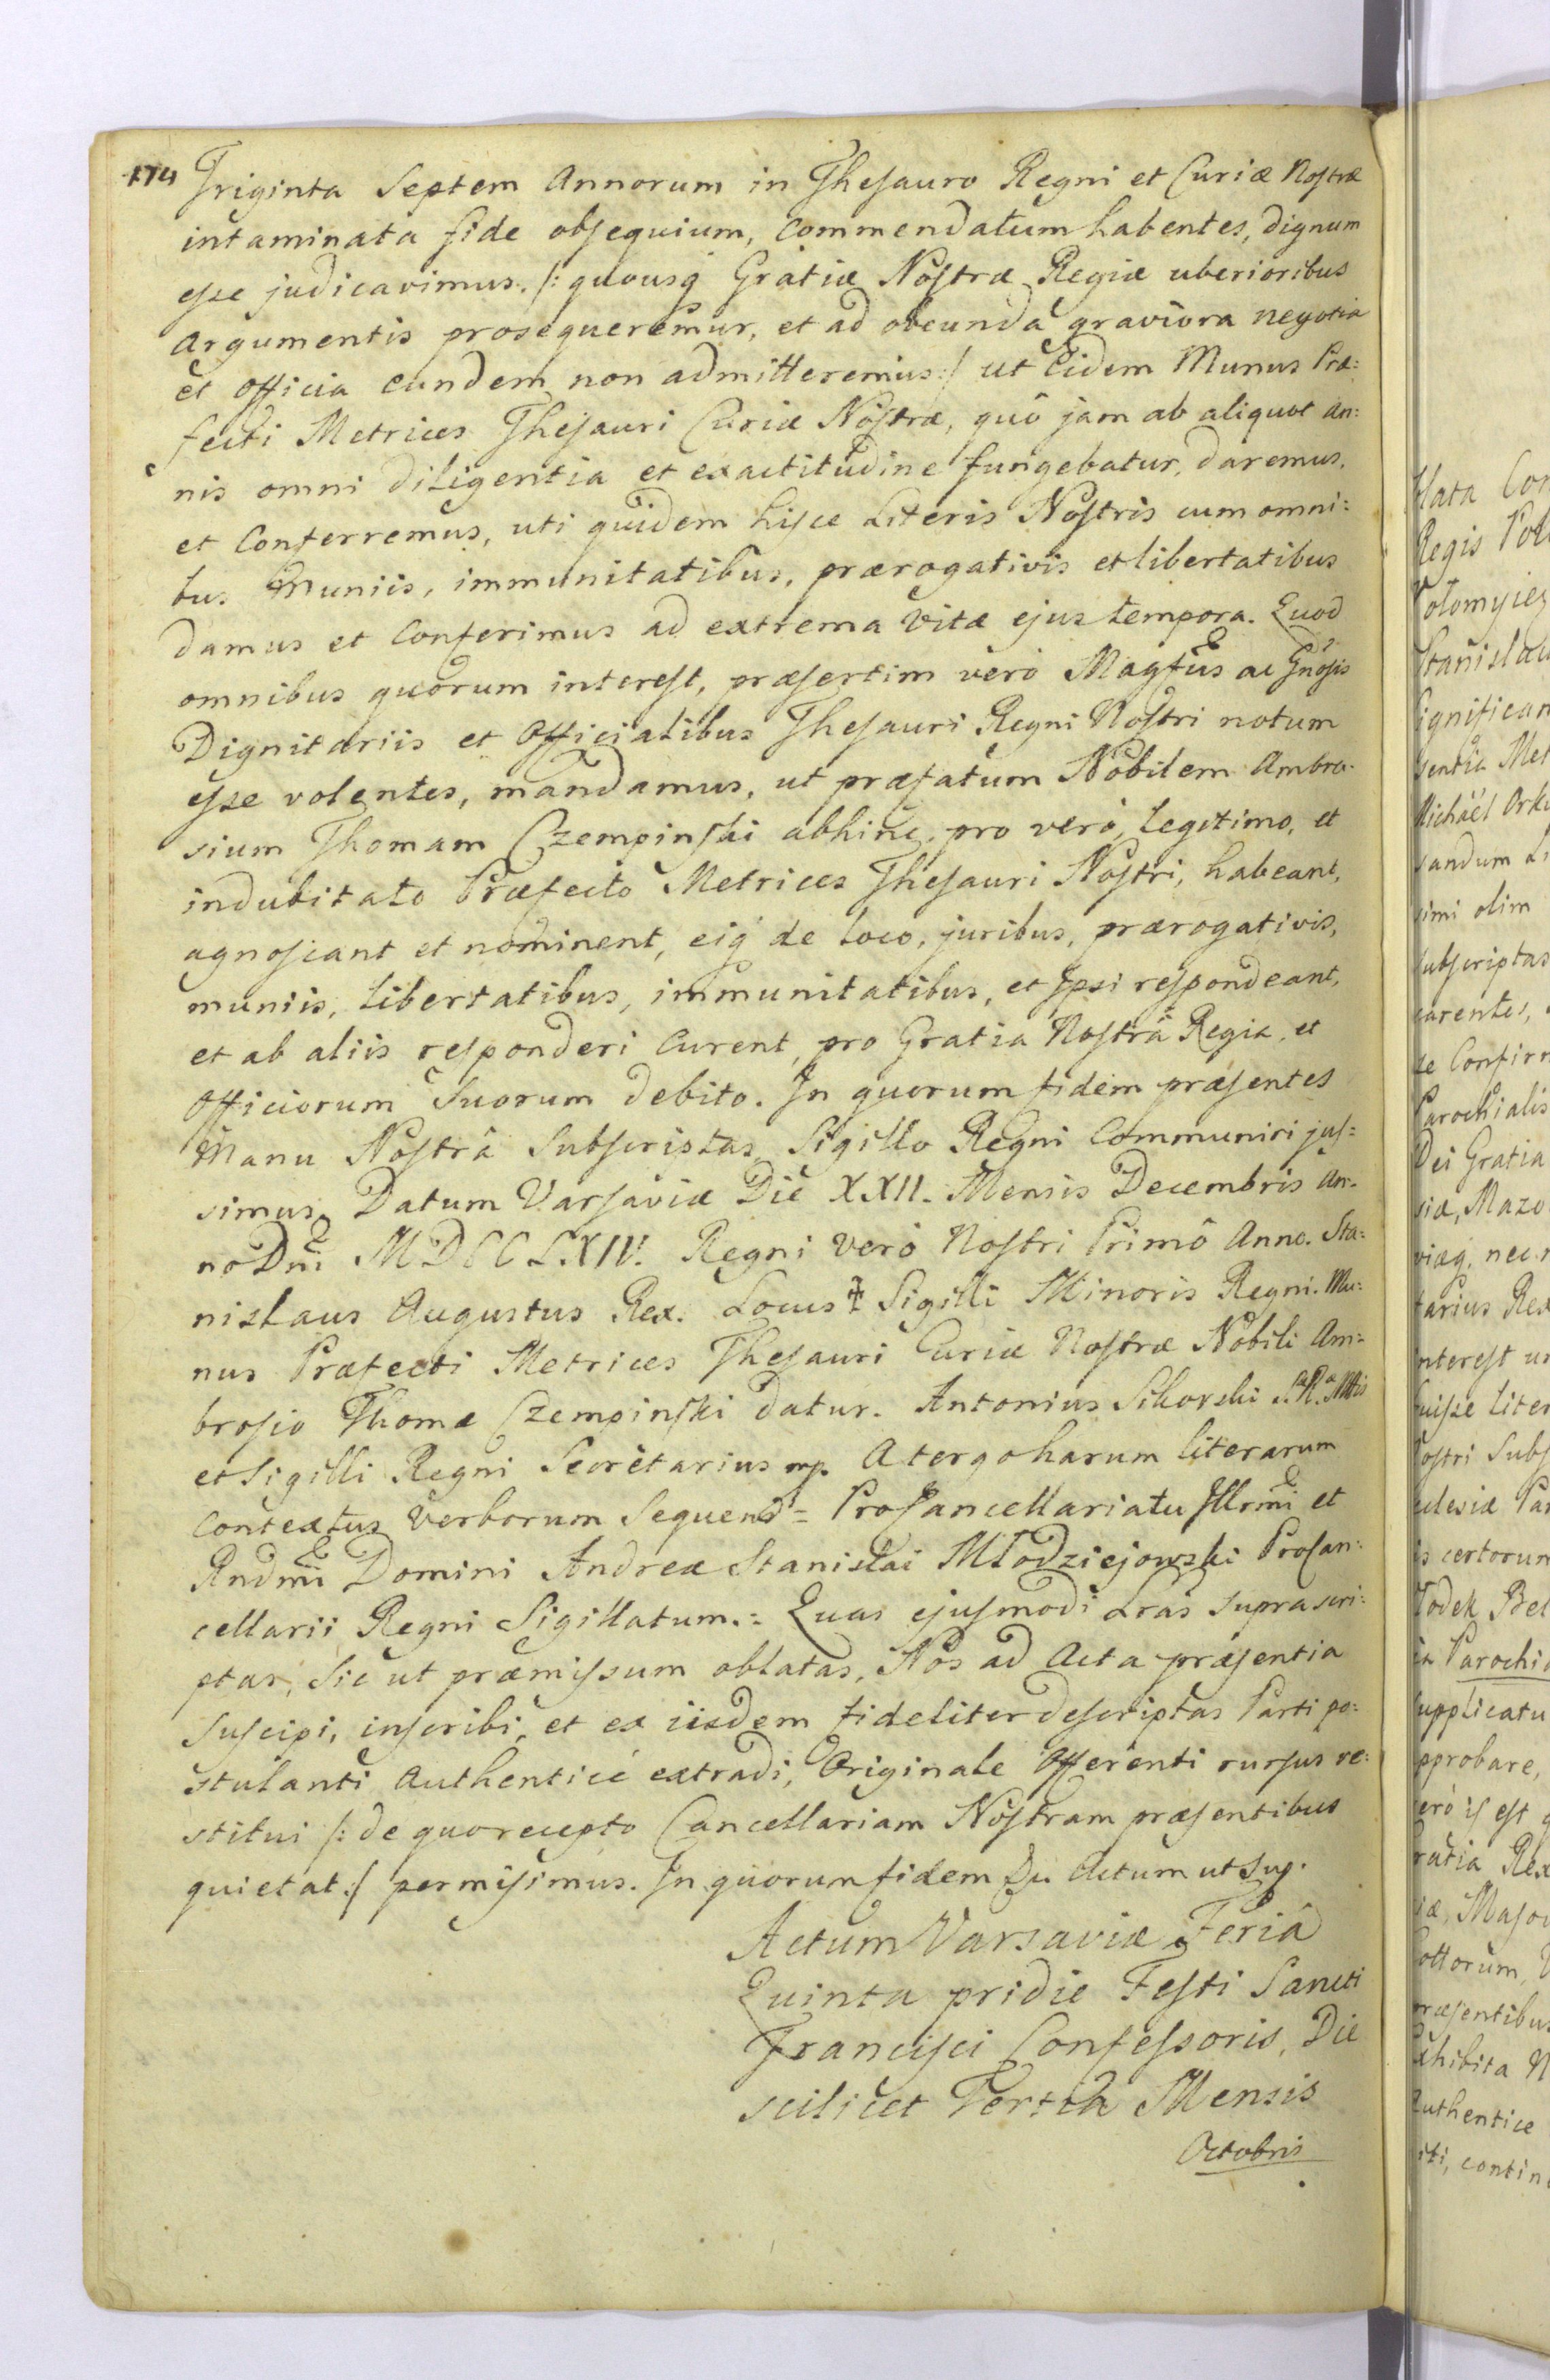 174
Triginta Septem Annorum in Thesauro Regni et Curiæ Nostræ
intaminata fide obsequium, Commendatum habentes, dignum
esse judicavimus. /: quousq Gratiæ Nostræ Regiæ uberioribus
Argumentis prosequeremur, et ad obeunda graviora negotia
et Officia eundem non admitteremus :/ ut Eidem Munus Præ:
fecti Metrices Thesauri Curiæ Nostræ, quô jam ab aliquot An:
nis omni diligentia et exactitudine fungebatur, daremus,
et Conferremus, uti quidem hisce Literis Nostris cum omni:
bus Muniis, immunitatibus, prærogativis et libertatibus
damus et Conferimus ad extrema Vitæ ejus tempora. Quod
omnibus quorum interest, præsertim verò Magfcis ac Gnosis
Dignitariis et Officialibus Thesauri Regni Nostri notum
esse volentes, mandamus, ut præfatum Nobilem Ambro-
sium Thomam Czempinski abhinc, pro verò, legitimo, et
indubitato Præfecto Metrices Thesauri Nostri, habeant,
agnoscant et nominent, eiq de loco, juribus, prærogativis,
muniis, libertatibus, immunitatibus, et Ipsi respondeant,
et ab aliis responderi Curent, pro Gratia Nostrâ Regia, et
Officiorum Suorum debito. In quorum fidem præsentes
Manu Nostrâ Subscriptas, Sigillo Regni Communiri jus=
simus. Datum Varsaviæ Die XXII. Mensis Decembris An-
no Dni MDCCLXIV. Regni verò Nostri Primô Anno. Sta:
nislaus Augustus Rex. Locus ‡ Sigilli Minoris Regni. Mu:
nus Præfecti Metrices Thesauri Curiæ Nostræ Nobili Am=
brosio Thomæ Czempinski datur. Antonius Sikorski S. R. Mtis
et Sigilli Regni Secretarius mp. A tergo harum literarum
Contextus Verborum Sequens = ProCancellariatu Illrmi et
Rndmi Domini Andreæ Stanislai Młodziejowski ProCan:
cellarii Regni Sigillatum. = Quas ejusmodi Lras supra scri:
ptas, Sic ut præmissum oblatas, Nos ad Acta præsentia
Suscipi, inscribi, et ex iisdem fideliter descriptas Parti po:
stulanti Authenticè extradi, Originale Offerenti rursus re:
stitui /: de quo recepto Cancellariam Nostram præsentibus
quietat :/ permisimus. In quorum fidem Actum ut Sup.
Actum Varsaviæ Feriâ
Quinta pridie Festi Sancti
Francisci Confessoris, Die
scilicet Tertia Mensis
Octobris